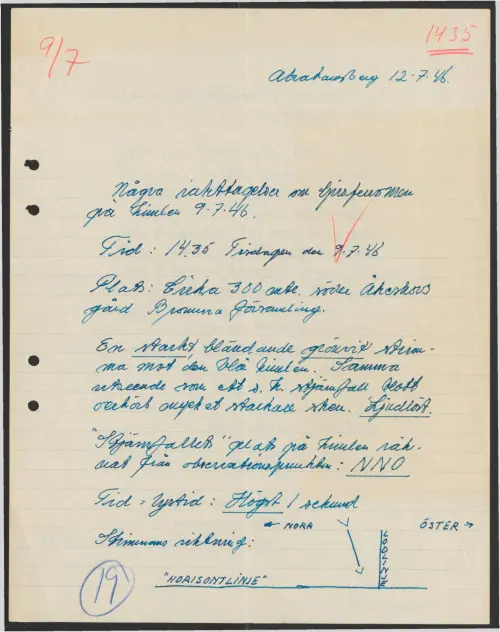 9/7
1435
Abrahamsberg 12-7-46.
Några iakttagelser om ljusfenomen
på himlen 9-7-46.
Tid: 1435 Tisdagen den 9-7-46
Plats: Cirka 300 mtr. söder Åkeshovs
gård Bromma församling.
En starkt bländande grönvit strim-
ma mot den blå himlen. Samma
utseende som ett s.k. stjärnfall blott
oerhört mycket starkare sken. Ljudlöst.
"Stjärnfallets" plats på himlen räk-
nat från observationspunkten: NNO
Tid = Lystid: Högst 1 sekund
← NORR ÖSTER →
Strimmans riktning:
LODLINJE
"HORISONTLINJE"
19